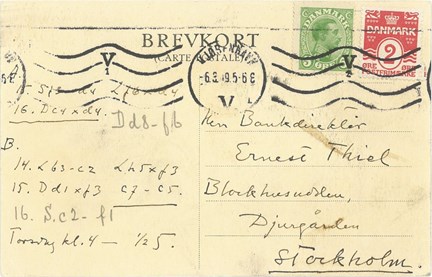 BREVKORT
(CARTE POSTALE)
KJØBENHAVN
V
1
V
DANMARK
5 ØRE
DANMARK
2
ØRE ØRE
POSTFRIMÆRKE
16. Dc4xd4
Dd8-f6
B.
14. Lb3-c2 Lh5xf3
15. Dd1xf3 c7-c5.
16. S.c2-f1
Torsdag kl. 4 — 1/2 5.
Herr Bankdirektör
Ernest Thiel
Blockhusudden,
Djurgården
Stockholm.